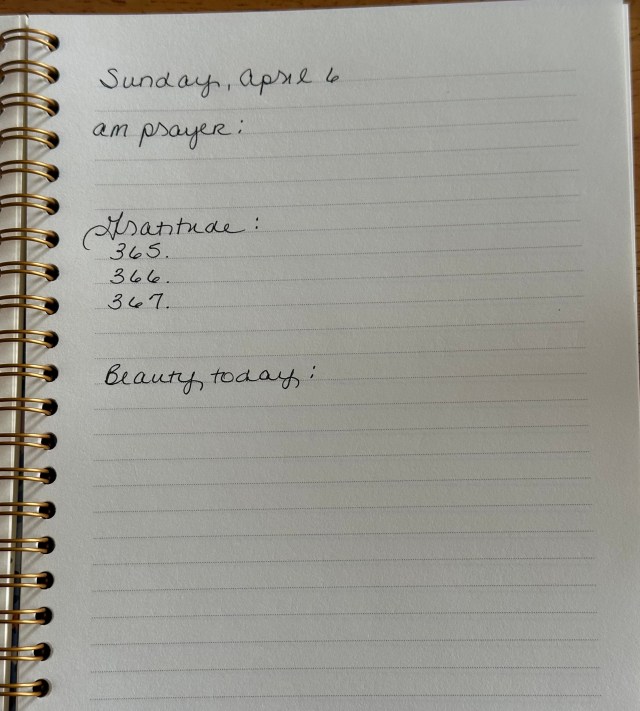 Sunday, April 6
am prayer:
Gratitude:
365.
366.
367.
Beauty today: